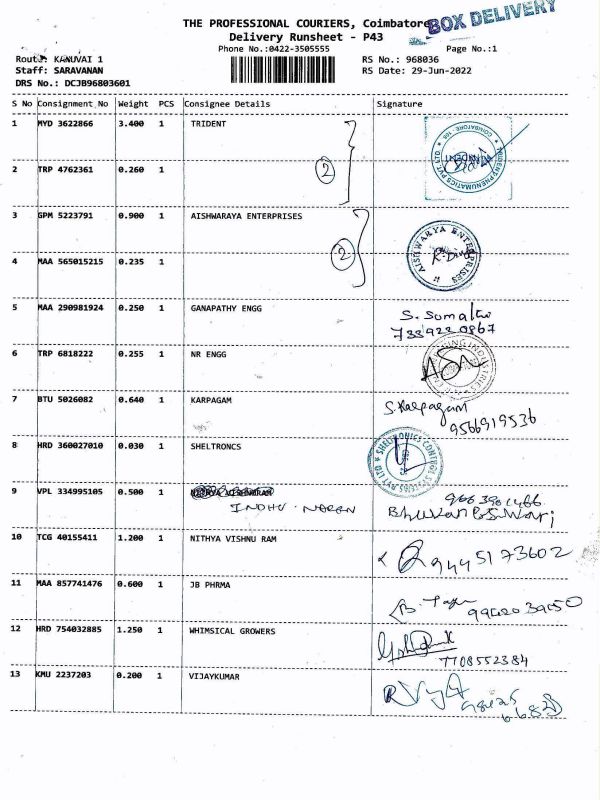 THE PROFESSIONAL COURIERS, Coimbatore
BOX DELIVERY
Delivery Runsheet - P43
Phone No.:0422-3505555
Page No.:1
Route: KANUVAI 1
RS No.: 968036
Staff: SARAVANAN
RS Date: 29-Jun-2022
DRS No.: DCJB96803601
S No Consignment No Weight PCS Consignee Details Signature
1 MYD 3622866 3.400 1 TRIDENT
2 TRP 4762361 0.260 1
2
3 GPM 5223791 0.900 1 AISHWARAYA ENTERPRISES
AISHWARYA ENTERPRISES
4 MAA 565015215 0.235 1
2
5 MAA 290981924 0.250 1 GANAPATHY ENGG
6 TRP 6818222 0.255 1 NR ENGG
7 BTU 5026082 0.640 1 KARPAGAM S. Karpagam
9566919536
8 HRD 360027010 0.030 1 SHELTRONCS
SHELTRONICS CONTROL SYSTEMS PVT LTD
9 VPL 334995105 0.500 1
INDHU
10 TCG 40155411 1.200 1 NITHYA VISHNU RAM 9445173602
11 MAA 857741476 0.600 1 JB PHRMA
12 HRD 754032885 1.250 1 WHIMSICAL GROWERS
7708552384
13 KMU 2237203 0.200 1 VIJAYKUMAR